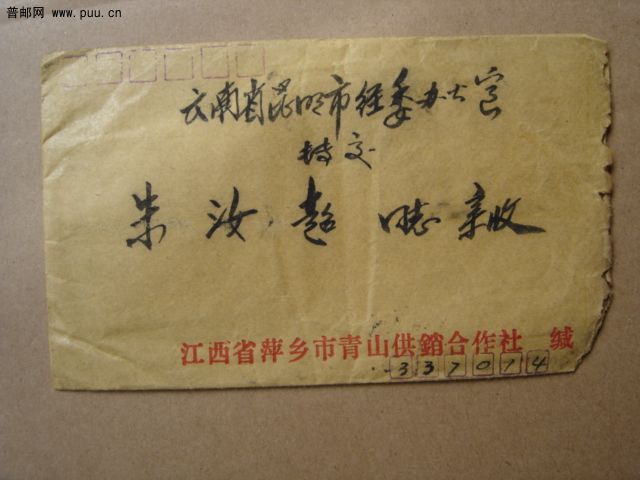 普邮网 www.puu.cn
云南省昆明市经委办公室
转交
朱汝超 同志 亲收
江西省萍乡市青山供銷合作社 缄
337014